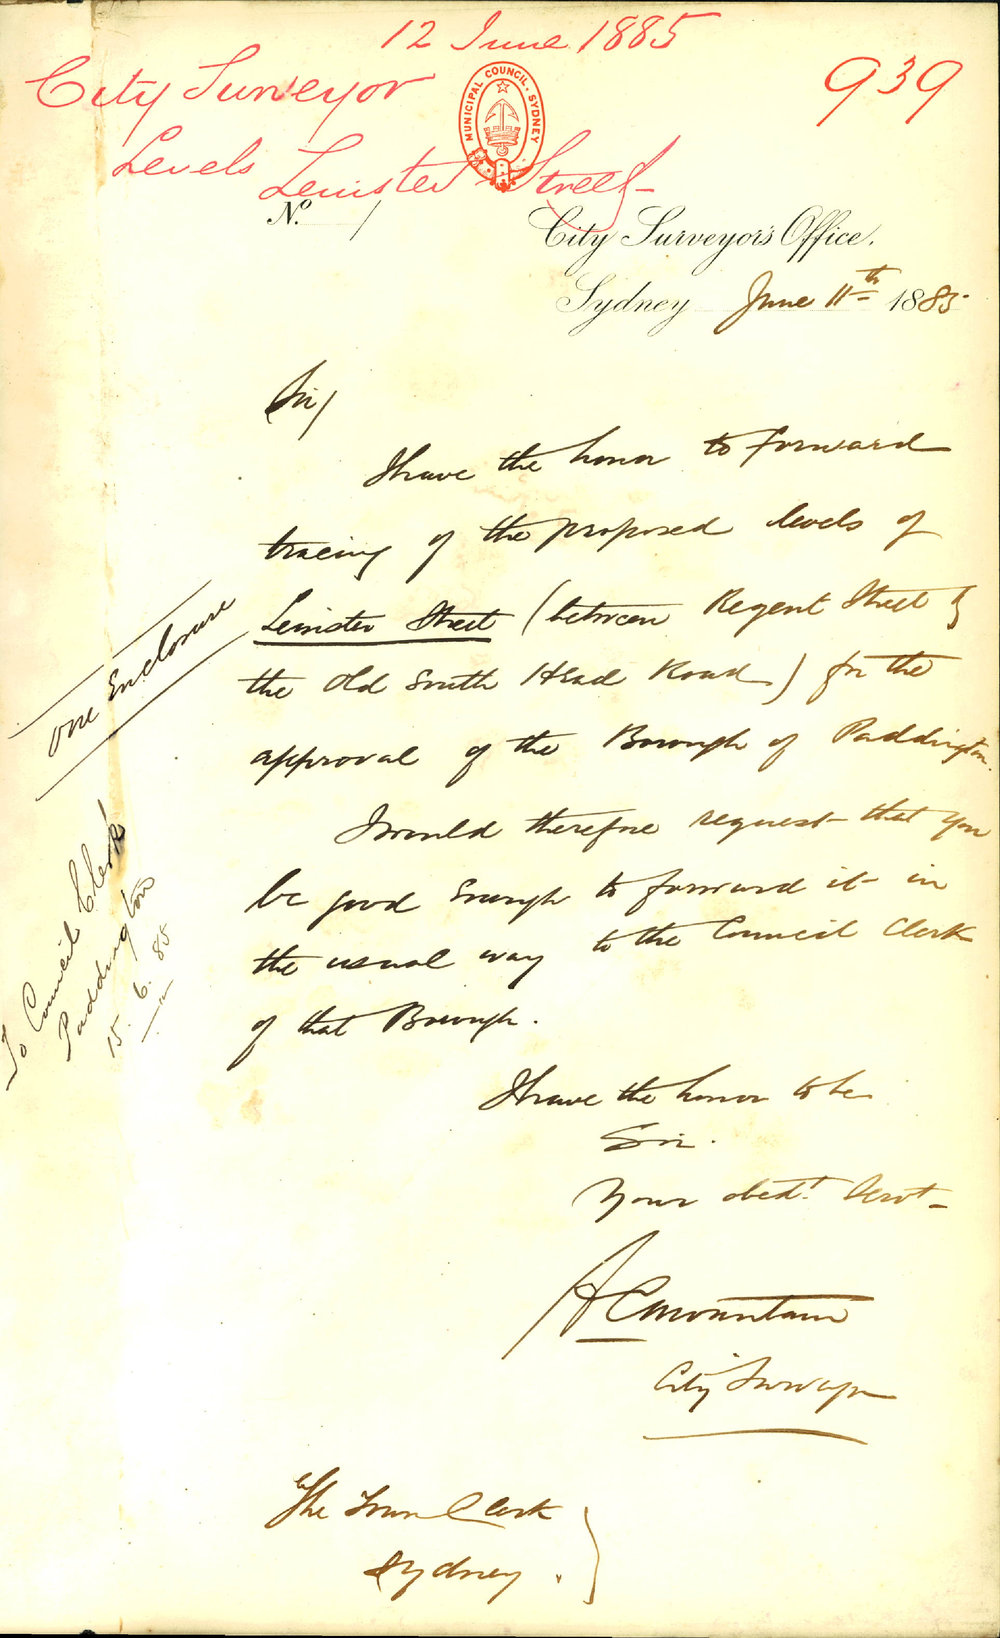 12 June 1885
City Surveyor
939
MUNICIPAL COUNCIL. SYDNEY
Levels Leinster Street
No. /
City Surveyor's Office.
Sydney June 11th 1885
Sir/
I have the honor to forward
tracing of the proposed levels of
Leinster Street (between Regent Street &
the Old South Head Road) for the
approval of the Borough of Paddington.
I would therefore request that you
be good enough to forward it in
the usual way to the Council Clerk
of that Borough.
I have the honor to be
Sir.
Your obedt. Servt
City Surveyor
The Town Clerk
Sydney.
One Enclosure
To Council Clerk
Paddington
15.6.85